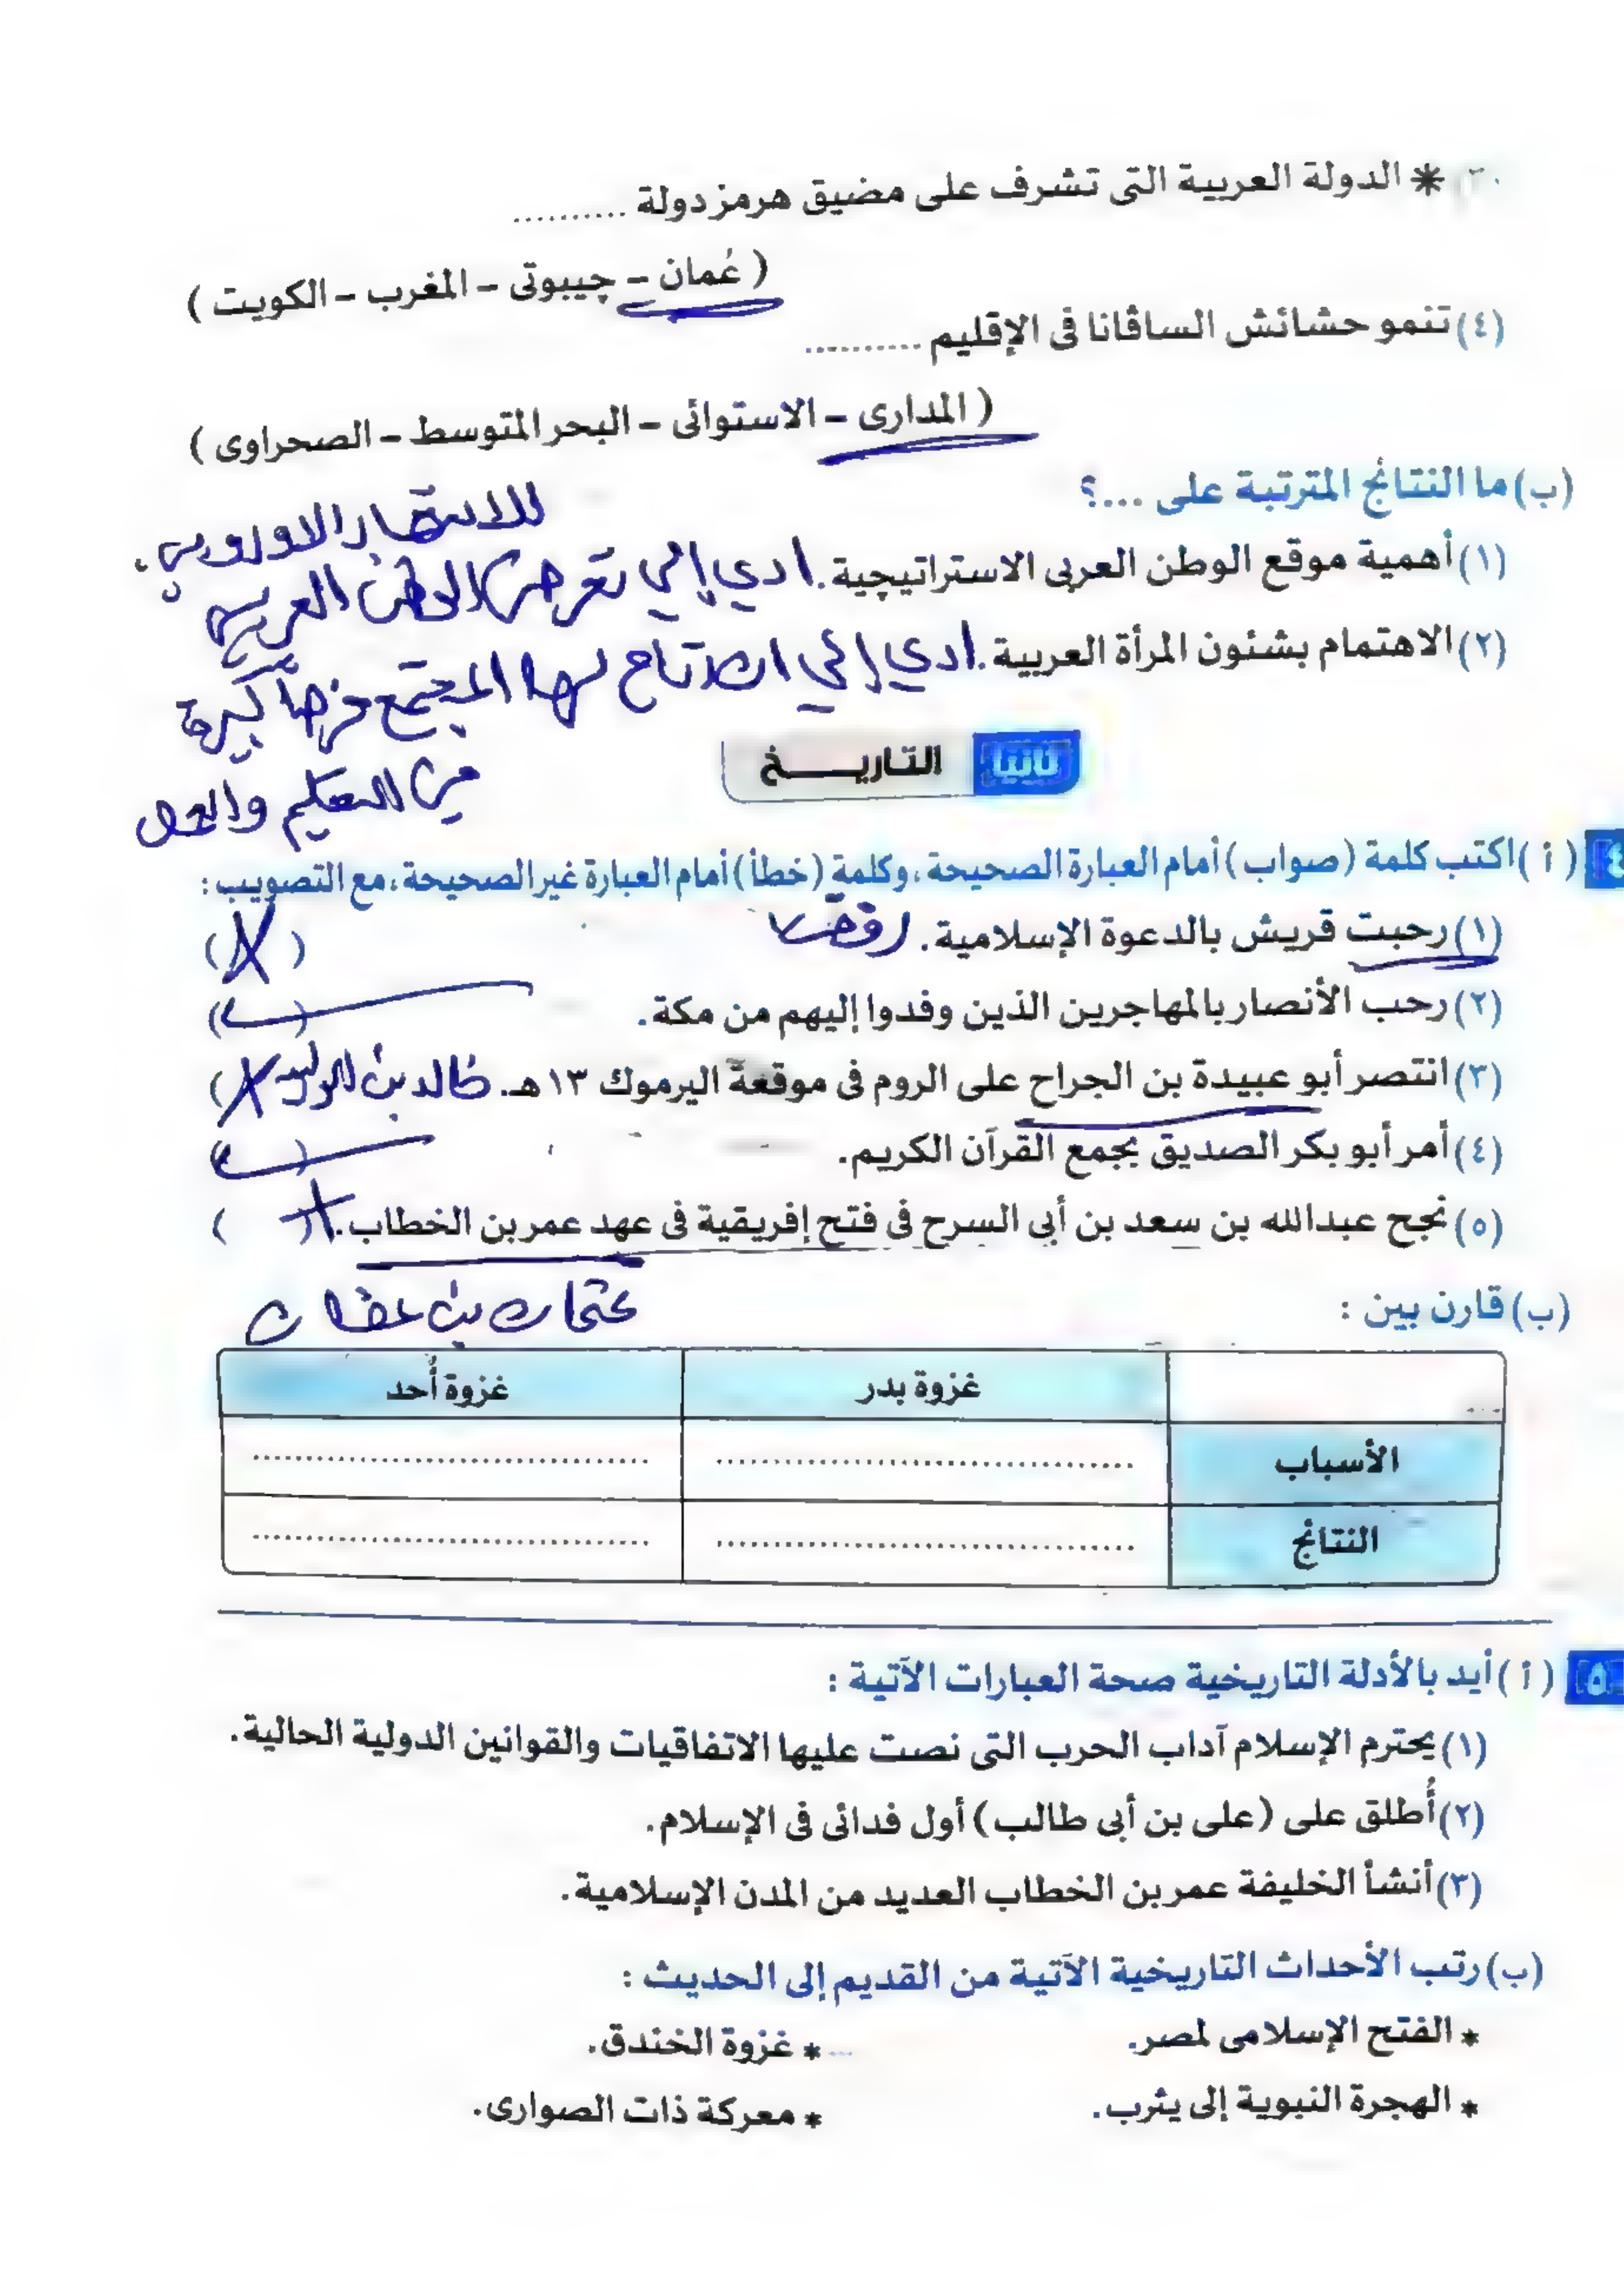 * الدولة العربية التى تشرف على مضيق هرمز دولة ..........
( عُمان - چيبوتى - المغرب - الكويت )
(٤) تنمو حشائش الساڤانا فى الإقليم ..........
( المدارى - الاستوائى - البحر المتوسط - الصحراوى )
(ب) ما النتائج المترتبة على ...؟
للاستعمار الاوروبي.
(١) أهمية موقع الوطن العربى الاستراتيجية. ادي إلي تعرض الوطن العربي
(٢) الاهتمام بشئون المرأة العربية. ادي إلي ان اتاح لها المجتمع فرصاً كبيرة
من التعليم والعمل
ثانيا التاريخ
٤ ( أ ) اكتب كلمة (صواب) أمام العبارة الصحيحة، وكلمة (خطأ) أمام العبارة غير الصحيحة، مع التصويب :
(١) رحبت قريش بالدعوة الإسلامية. رفضت (X)
(٢) رحب الأنصار بالمهاجرين الذين وفدوا إليهم من مكة. (✓)
(٣) انتصر أبو عبيدة بن الجراح على الروم فى موقعة اليرموك ١٣ هـ. خالد بن الوليد (X)
(٤) أمر أبو بكر الصديق بجمع القرآن الكريم. (✓)
(٥) نجح عبدالله بن سعد بن أبى السرح فى فتح إفريقية فى عهد عمر بن الخطاب. (X)
عثمان بن عفان
(ب) قارن بين :
غزوة بدر غزوة أُحد
الأسباب .......... ..........
النتائج .......... ..........
٥ ( أ ) أيد بالأدلة التاريخية صحة العبارات الآتية :
(١) يحترم الإسلام آداب الحرب التى نصت عليها الاتفاقيات والقوانين الدولية الحالية.
(٢) أُطلق على (على بن أبى طالب) أول فدائى فى الإسلام.
(٣) أنشأ الخليفة عمر بن الخطاب العديد من المدن الإسلامية.
(ب) رتب الأحداث التاريخية الآتية من القديم إلى الحديث :
* الفتح الإسلامى لمصر. * غزوة الخندق.
* الهجرة النبوية إلى يثرب. * معركة ذات الصوارى.